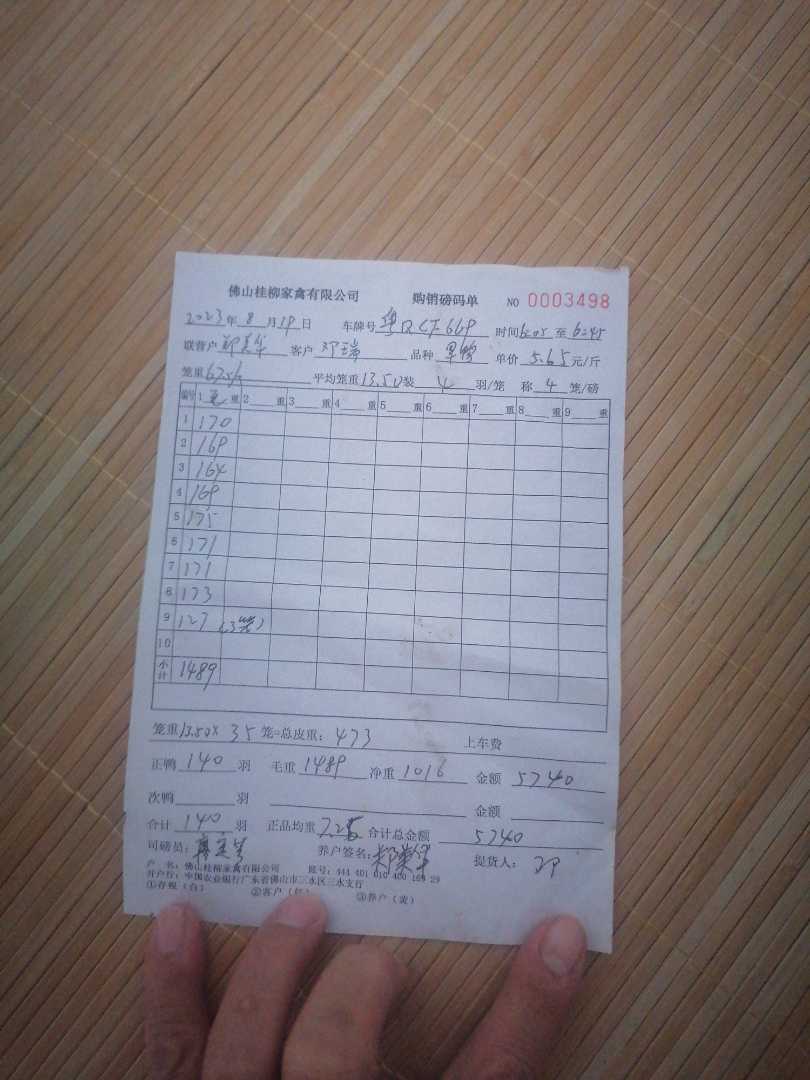 佛山桂柳家禽有限公司 购销磅码单 NO 0003498
2023年8月19日 车牌号粤QCF669 时间6:05至6:45
联营户 客户邓瑞 品种 单价5.65元/斤
笼重 平均笼重13.50装4羽/笼 称4笼/磅
编号 1毛重 2重 3重 4重 5重 6重 7重 8重 9重
1 170
2 169
3 164
4 169
5 175
6 171
7 171
8 173
9 127 (3笼)
10
小计 1489
笼重13.50×35笼=总皮重:473 上车费
正鸭140羽 毛重1489 净重1016 金额5740
次鸭 羽 金额
合计140羽 正品均重7.25 合计总金额5740
司磅员: 养户签名: 提货人:
户 名:佛山桂柳家禽有限公司 账号:444 401 010 400 169 29
开户行:中国农业银行广东省佛山市三水区三水支行
①存根(白) ②客户(红) ③养户(黄)